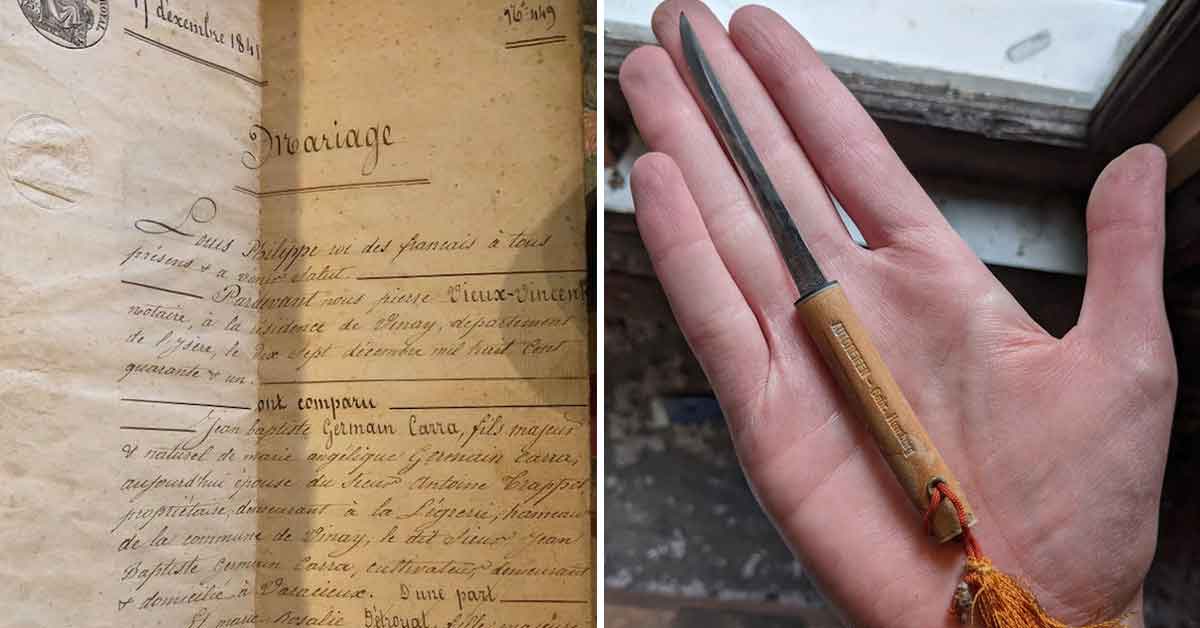 17 décembre 1841
N° 449
Mariage
Louis Philippe roi des français à tous
présens & a venir salut.
Pardevant nous pierre Vieux-Vincent
notaire, à la résidence de Vinay, département
de l'ysère, le dix sept décembre mil huit cent
quarante & un.
ont comparu
Jean baptiste Germain Carra, fils majeur
& naturel de marie angélique Germain Carra,
aujourd'hui épouse du sieur Antoine Trappot
propriétaire, demeurant à la Légrerie, hameau
de la commune de Vinay, le dit Sieur Jean
Baptiste Germain Carra, cultivateur, demeurant
& domicilié à Varacieux. D'une part
Et marie Rosalie Détroyat, fille majeure